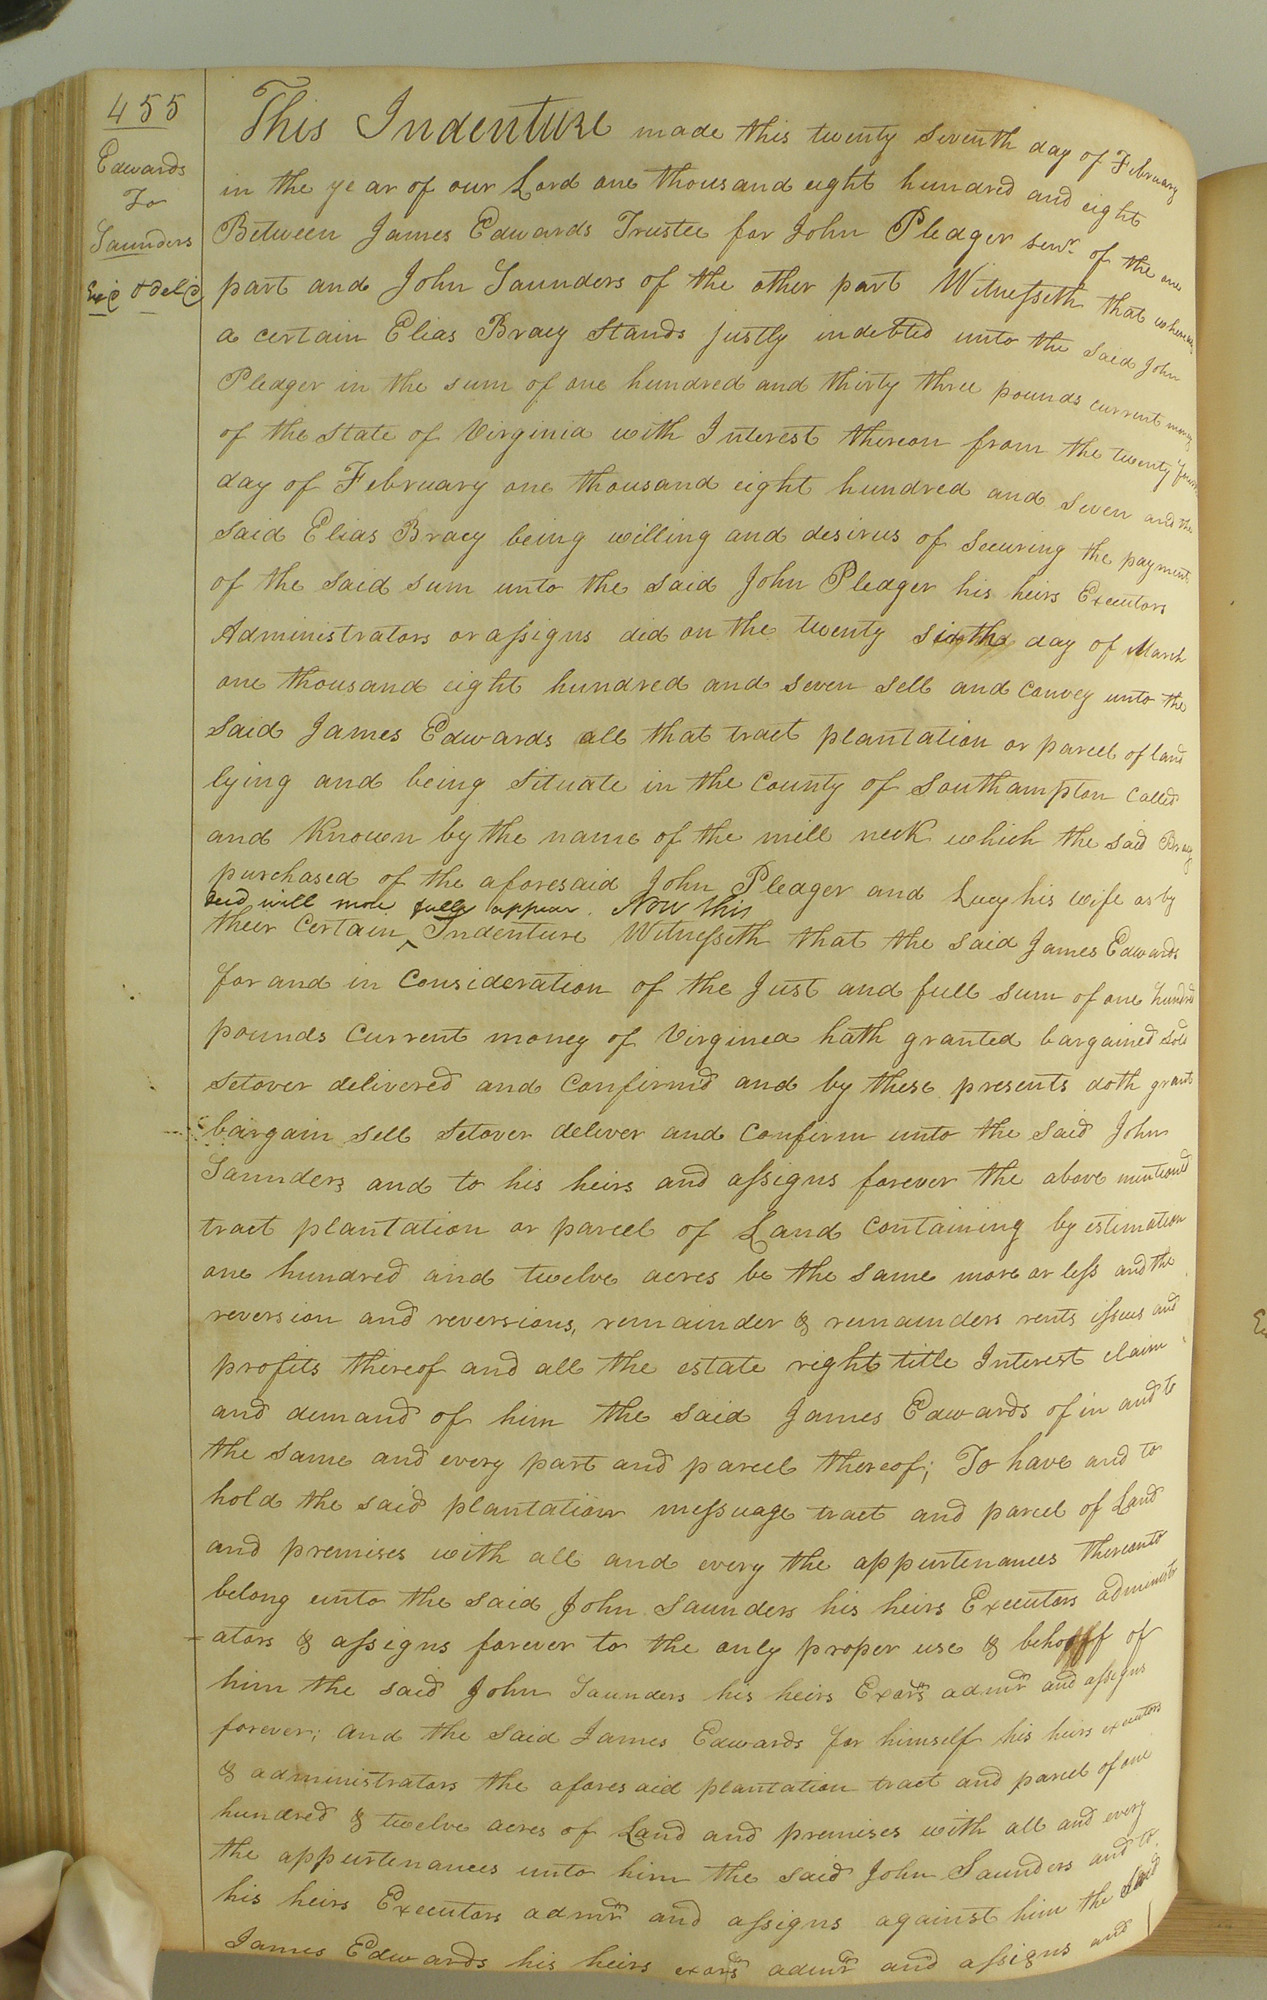 455
Edwards
To
Saunders
Ex'd & del'd
This Indenture made this twenty seventh day of February
in the year of our Lord one thousand eight hundred and eight
Between James Edwards Trustee for John Pledger senr. of the one
part and John Saunders of the other part Witnesseth that whereas
a certain Elias Bracy Stands justly indebted unto the said John
Pledger in the sum of one hundred and thirty three pounds current money
of the state of Virginia with Interest thereon from the twenty
day of February one thousand eight hundred and seven and the
said Elias Bracy being willing and desirus of securing the payment
of the said sum unto the said John Pledger his heirs Executors
Administrators or assigns did on the twenty sixth day of March
one thousand eight hundred and seven sell and convey unto the
said James Edwards all that tract plantation or parcel of land
lying and being situate in the County of Southampton called
and known by the name of the mill neck which the said Bracy
purchased of the aforesaid John Pledger and Lucy his wife as by
deed will more fully appear. Now this
their certain ^ Indenture Witnesseth that the said James Edwards
for and in consideration of the Just and full sum of one hundred
pounds current money of Virginia hath granted bargained sold
setover delivered and confirmd and by these presents doth grant
bargain sell setover deliver and confirm unto the said John
Saunders and to his heirs and assigns forever the above mentioned
tract plantation or parcel of Land containing by estimation
one hundred and twelve acres be the same more or less and the
reversion and reversions, remainder & remainders rents issues and
profits thereof and all the estate right title Interest claim
and demand of him the said James Edwards of in and to
the same and every part and parcel thereof; To have and to
hold the said plantation messuage tract and parcel of Land
and premises with all and every the appurtenances thereunto
belong unto the said John Saunders his heirs Executors administr
ators & assigns forever to the only proper use & behoof of
him the said John Saunders his heirs Exors admrs and assigns
forever; and the said James Edwards for himself his heirs executors
& administrators the aforesaid plantation tract and parcel of one
hundred & twelve acres of Land and premises with all and every
the appurtenances unto him the said John Saunders and to
his heirs Executors admrs and assigns against him the said
James Edwards his heirs exors admrs and assigns and